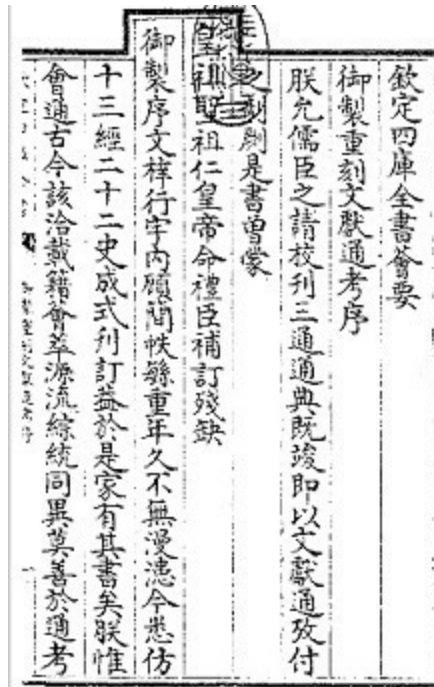 欽定四庫全書薈要
御製重刻文獻通考序
朕允儒臣之請校刊三通通典既竣即以文獻通攷付
之剞劂是書曾蒙
皇祖聖祖仁皇帝命禮臣補訂殘缺
御製序文梓行宇內顧簡帙繇重年久不無漫漶今悉仿
十三經二十二史成式刋訂葢於是家有其書矣朕惟
會通古今該洽載籍會萃源流綜統同異莫善於通考